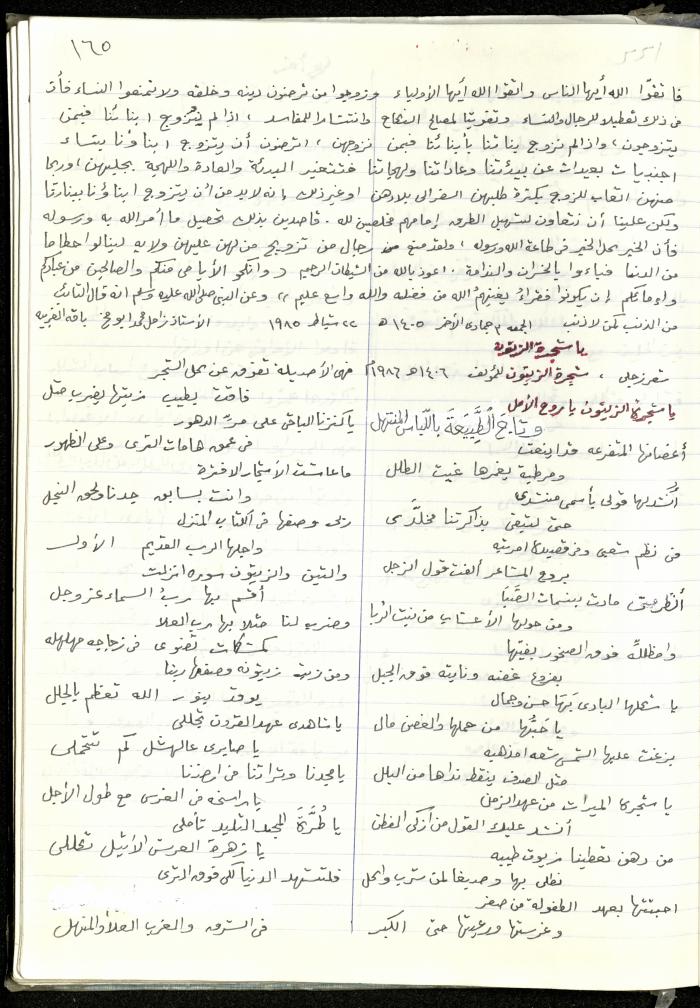 ١٦٥
فاتقوا الله أيها الناس واتقوا الله أيها الأولياء وزوجوا من ترضون دينه وخلقه ولا تمنعوا النساء فأن
في ذلك تعطيلا للرجال والنساء وتفويتا لمصالح النكاح وانتشارا للمفاسد ، اذا لم يتزوج ابنائنا فبمن
يتزوجون ، واذا لم نزوج بناتنا بأبنائنا فبمن نزوجهن ، اترضون أن يتزوج ابناؤنا بنساء
اجنبيات بعيدات عن بيئتنا وعاداتنا ولهجاتنا فتتغير البيئة والعادة واللهجة بجلبهن ، وربما
منهن اتعاب للزوج بكثرة طلبهن السفر الى بلادهن او غير ذلك ، إنه لابد من أن يتزوج ابناؤنا ببناتنا
ولكن علينا أن نتعاون لتسهيل الطرق امامهم مخلصين لله . قاصدين بذلك تحصيل ما أمر الله به ورسوله
فأن الخير كل الخير في طاعة الله ورسوله ، ولقد منع رجال من تزويج من لهن عليهن ولايه لينالوا حطاما
من الدنيا فباءوا بالخسران والندامة . اعوذ بالله من الشيطان الرجيم (( وانكحوا الأيامى منكم والصالحين من عبادكم
واماءكم إن يكونوا فقراء يغنهم الله من فضله والله واسع عليم )) وعن النبي صلى الله عليه وسلم انه قال التائب
من الذنب كمن لا ذنب الجمعه ٣ جمادى الآخر ١٤٠٥ هـ ٢٢ شباط ١٩٨٥ الأستاذ زامل محمد ابو باقه الغربيه
يا شجرة الزيتون
شعر زجلي ، شجرة الزيتون للمؤلف ١٤٠٦ هـ ١٩٨٦ م
يا شجرة الزيتون يا روح الأمل
وتاج الطبيعة باللباس المنتهل
أغصانها المتفرعه قد اينعت
ومرطبة يغمرها غيث الطلل
أنشد بها قولي بأسمى منتدى
حتى ليبقى بذاكرتنا مخلدى
في نظم شعبي ومن قصيدها امريه
بروح المشاعر ألفت قول الزجل
أنظر متى مادت بنسمات الصبا
ومن حولها الأعشاب من نبت الربا
وامظلله فوق الصخور بفيئها
بفروع غصنه ونابته فوق الجبل
يا شكلها البادي بها حسن وجمال
يا حبها من حملها والغصن مال
بزغت عليها الشمس شعه امذهبه
مثل الصدف ينقط نداها من البلل
يا شجرة الميراث من عهد الزمن
أنشد عليك القول من أزكى الفطن
من دهن تعطينا زيوت طيبه
نطلى بها وصبغا لمن شرب واكل
احببتها بعهد الطفولة من صغر
وغرستها ورعيتها حتى الكبر
فهي الأصيلة تفرق عن كل الشجر
فاقت بطيب زيتها يضرب مثل
ياكنزنا الباقي على مر الدهور
في عمق هامات الثرى وعلى الظهور
ما عاشت الأشجار الا فتره
وانت بسابق جدنا ولحق النجل
ربي وصفها في الكتاب المنزل
واجلها الرب القديم الأول
والتين والزيتون سوره انزلت
أقسم بها رب السماء عز وجل
وضرب لنا مثلا بها رب العلا
كمشكات تضوى في زجاجه مهلهله
ومن زيت زيتونه وصفها ربنا
يوقد بنور الله تعظم بالجلل
يا شاهدي عهد القرون تجللي
يا صابرى عالهشل كم تتحملي
يا مجدنا وتراثنا في ارضنا
يا راسخه في الغرس مع طول الأجل
يا طرة المجد التليد تأملي
يا زهرة العرش الأثيل تعللي
فلتشهد الدنيا لكي فوق الثرى
في الشرق والغرب العلا والمنتهل